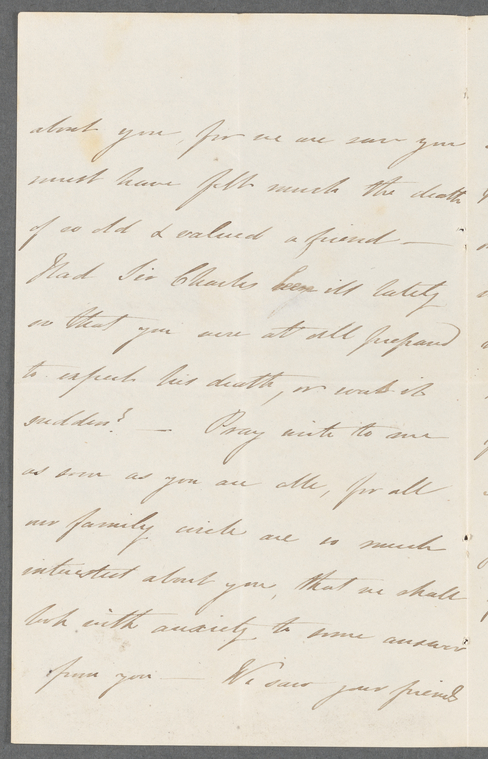 about you, for we are sure you
must have felt much the death
of so old & valued a friend —
Had Sir Charles been ill lately
so that you were at all prepared
to expect his death, or was it
sudden? — Pray write to me
as soon as you are able, for all
our family circle are so much
interested about you, that we shall
look with anxiety to some answer
from you — We saw your friend